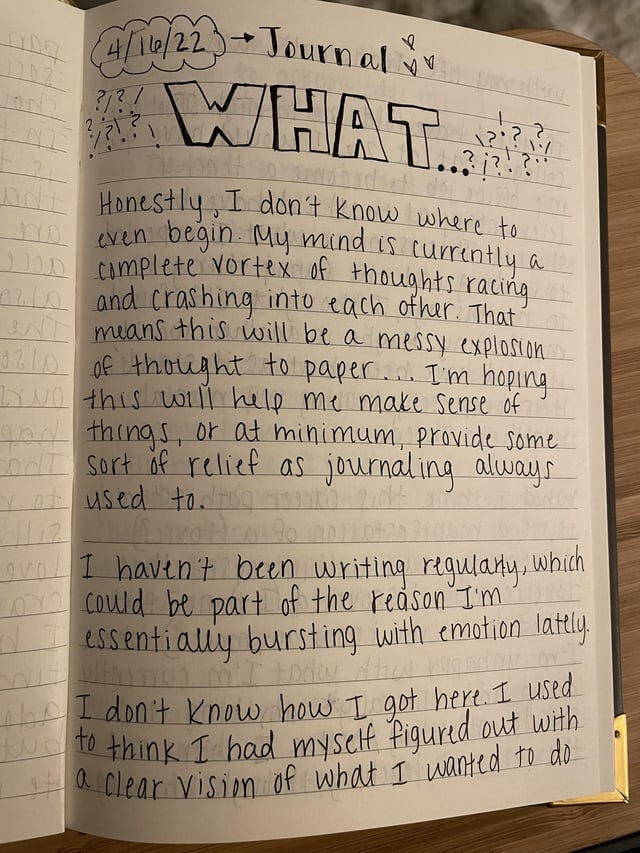 4/16/22 → Journal
?!?! WHAT... ?!?!
Honestly, I don't know where to
even begin. My mind is currently a
complete vortex of thoughts racing
and crashing into each other. That
means this will be a messy explosion
of thought to paper... I'm hoping
this will help me make sense of
things, or at minimum, provide some
sort of relief as journaling always
used to.
I haven't been writing regularly, which
could be part of the reason I'm
essentially bursting with emotion lately.
I don't know how I got here. I used
to think I had myself figured out with
a clear vision of what I wanted to do